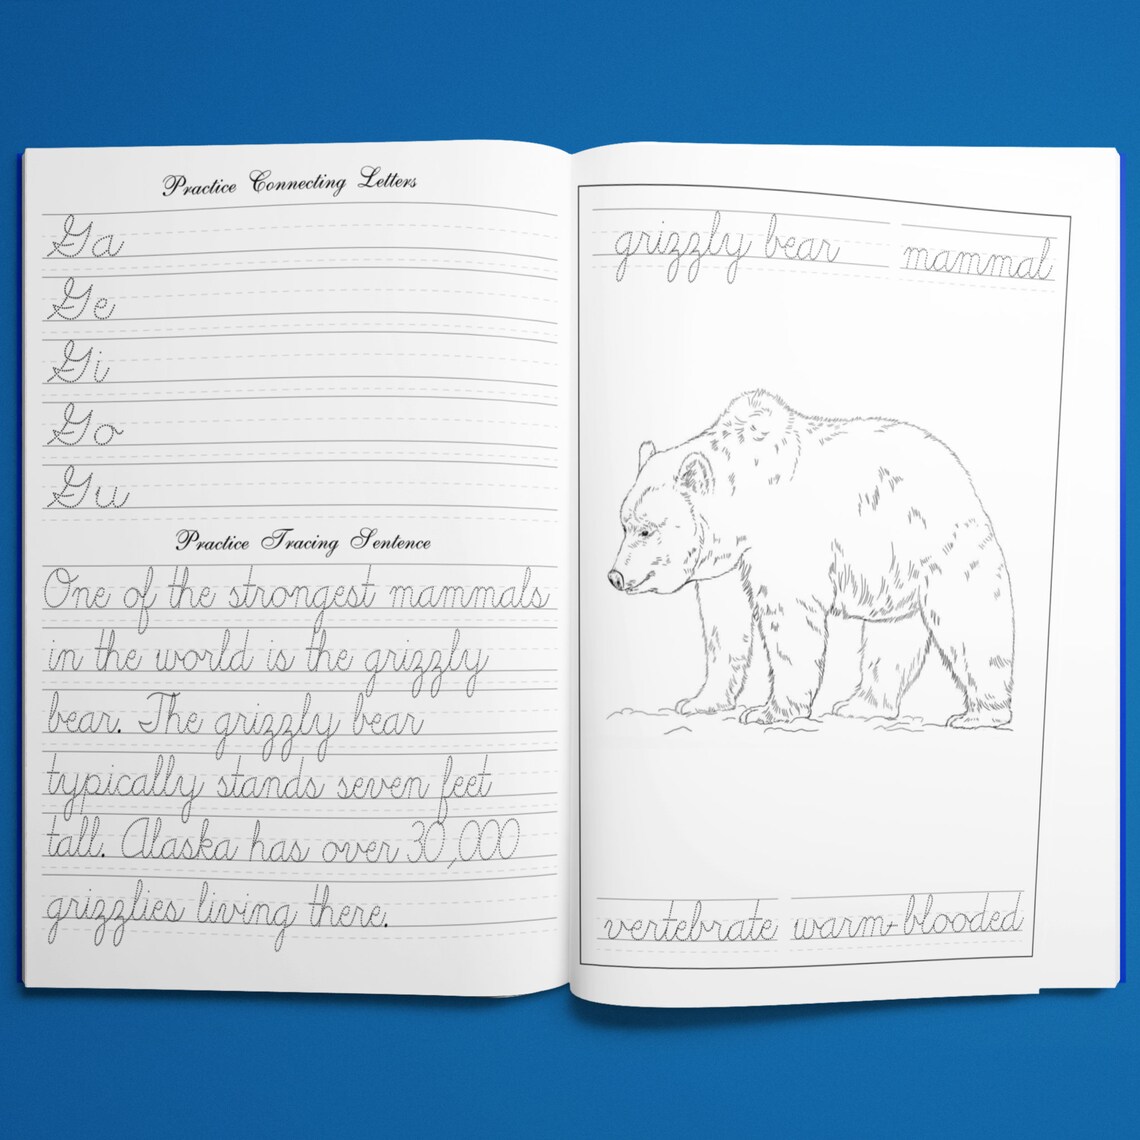 Practice Connecting Letters
Ga
Ge
Gi
Go
Gu
Practice Tracing Sentence
One of the strongest mammals
in the world is the grizzly
bear. The grizzly bear
typically stands seven feet
tall. Alaska has over 30,000
grizzlies living there.
grizzly bear mammal
vertebrate warm-blooded